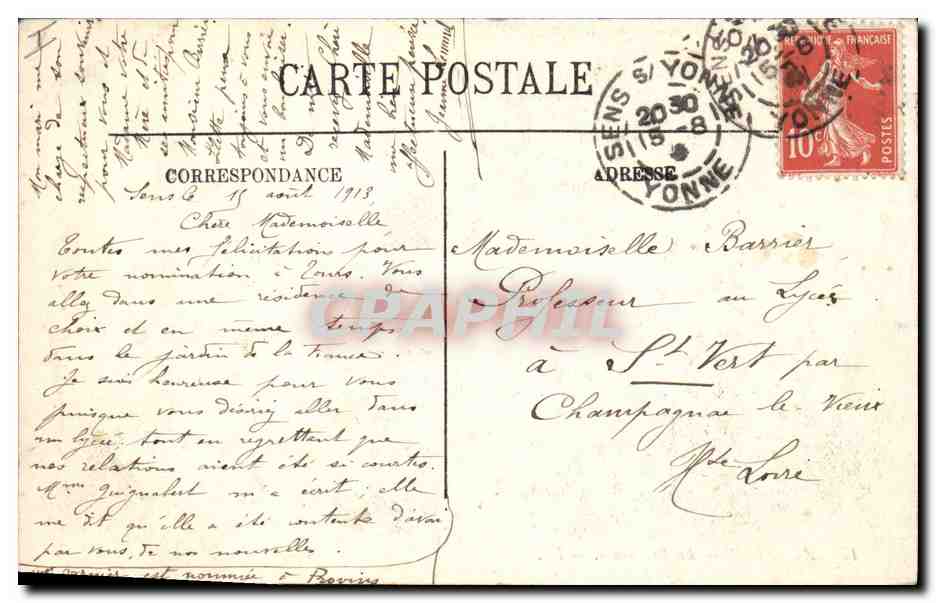 CARTE POSTALE
CORRESPONDANCE
ADRESSE
SENS S/ YONNE
20 30
15 - 8
YONNE
REPUBLIQUE FRANÇAISE
10 c
POSTES
Sens le 15 août 1913,
Chère Mademoiselle,
Toutes mes félicitation pour
votre nomination à Tours. Vous
allez dans une résidence de
choix et en même temps
dans le jardin de la France.
Je suis heureuse pour vous
puisque vous désiriez aller dans
un lycée, tout en regrettant que
nos relations aient été si courtes.
Mme Guignabert m'a écrit; elle
me dit qu'elle a été contente d'avoir
par vous, de nos nouvelles.
est nommée à Provins
Mon mari me
charge de son
respectueux souvenir
pour vous et
Madame votre
Mère et
Monsieur Barrier
toujours à vous
et vous envoie
un baiser
De
chère
Mademoiselle
affectueuse pensée
Mademoiselle Barrier
Professeur au Lycée
à St Vert par
Champagnac le Vieux
Hte Loire
CPAPHIL